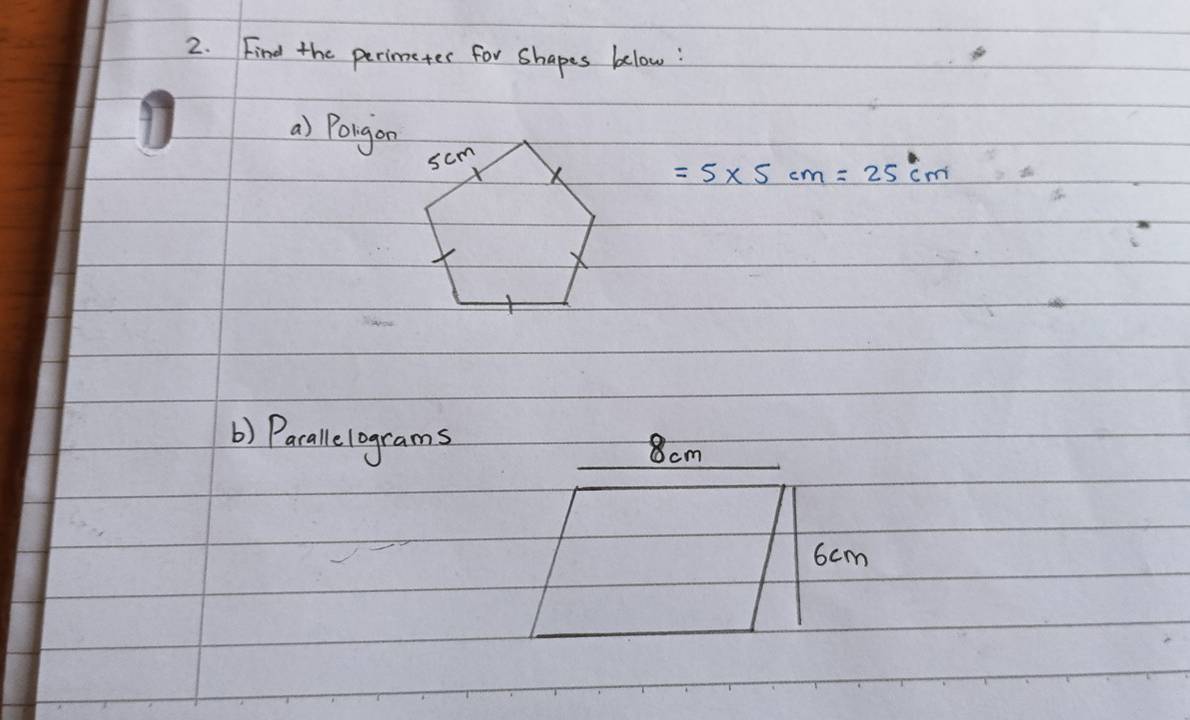 2. Find the perimeter for shapes below :
a) Poligon
5cm
= 5 x 5 cm = 25 cm
b) Parallelograms
8cm
6cm